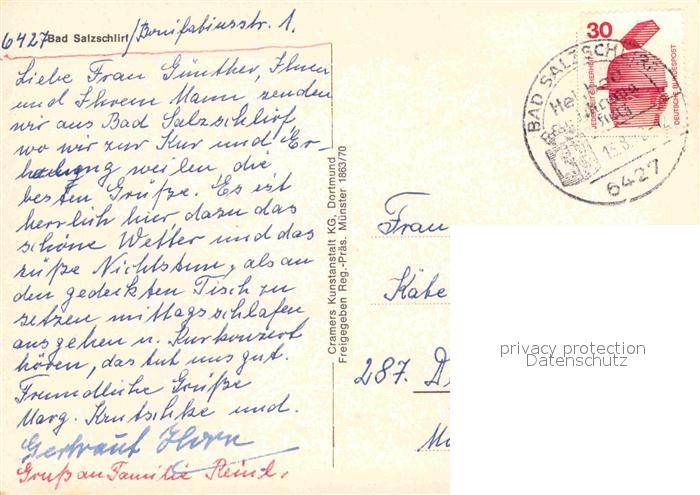 6427 Bad Salzschlirf / Bonifatiusstr. 1.
Liebe Frau Günther, Ihnen
und Ihrem Mann senden
wir aus Bad Salzschlirf,
wo wir zur Kur und Er-
holung weilen, die
besten Grüße. Es ist
herrlich hier dazu das
schöne Wetter und das
süße Nichtstun, als an
den gedeckten Tisch zu
setzen mittagsschlafen
ausgehen u. Kurkonzert
hören, das tut uns gut.
Freundliche Grüße
Marg. Krutschke und.
Gertraut Horn
Gruß an Familie Reinl.
Cramers Kunstanstalt KG, Dortmund
Freigegeben Reg.-Präs. Münster 1863/70
30
JEDERZEIT SICHERHEIT
DEUTSCHE BUNDESPOST
BAD SALZSCHLIRF
6427
Frau
Käte
287. D
privacy protection
Datenschutz